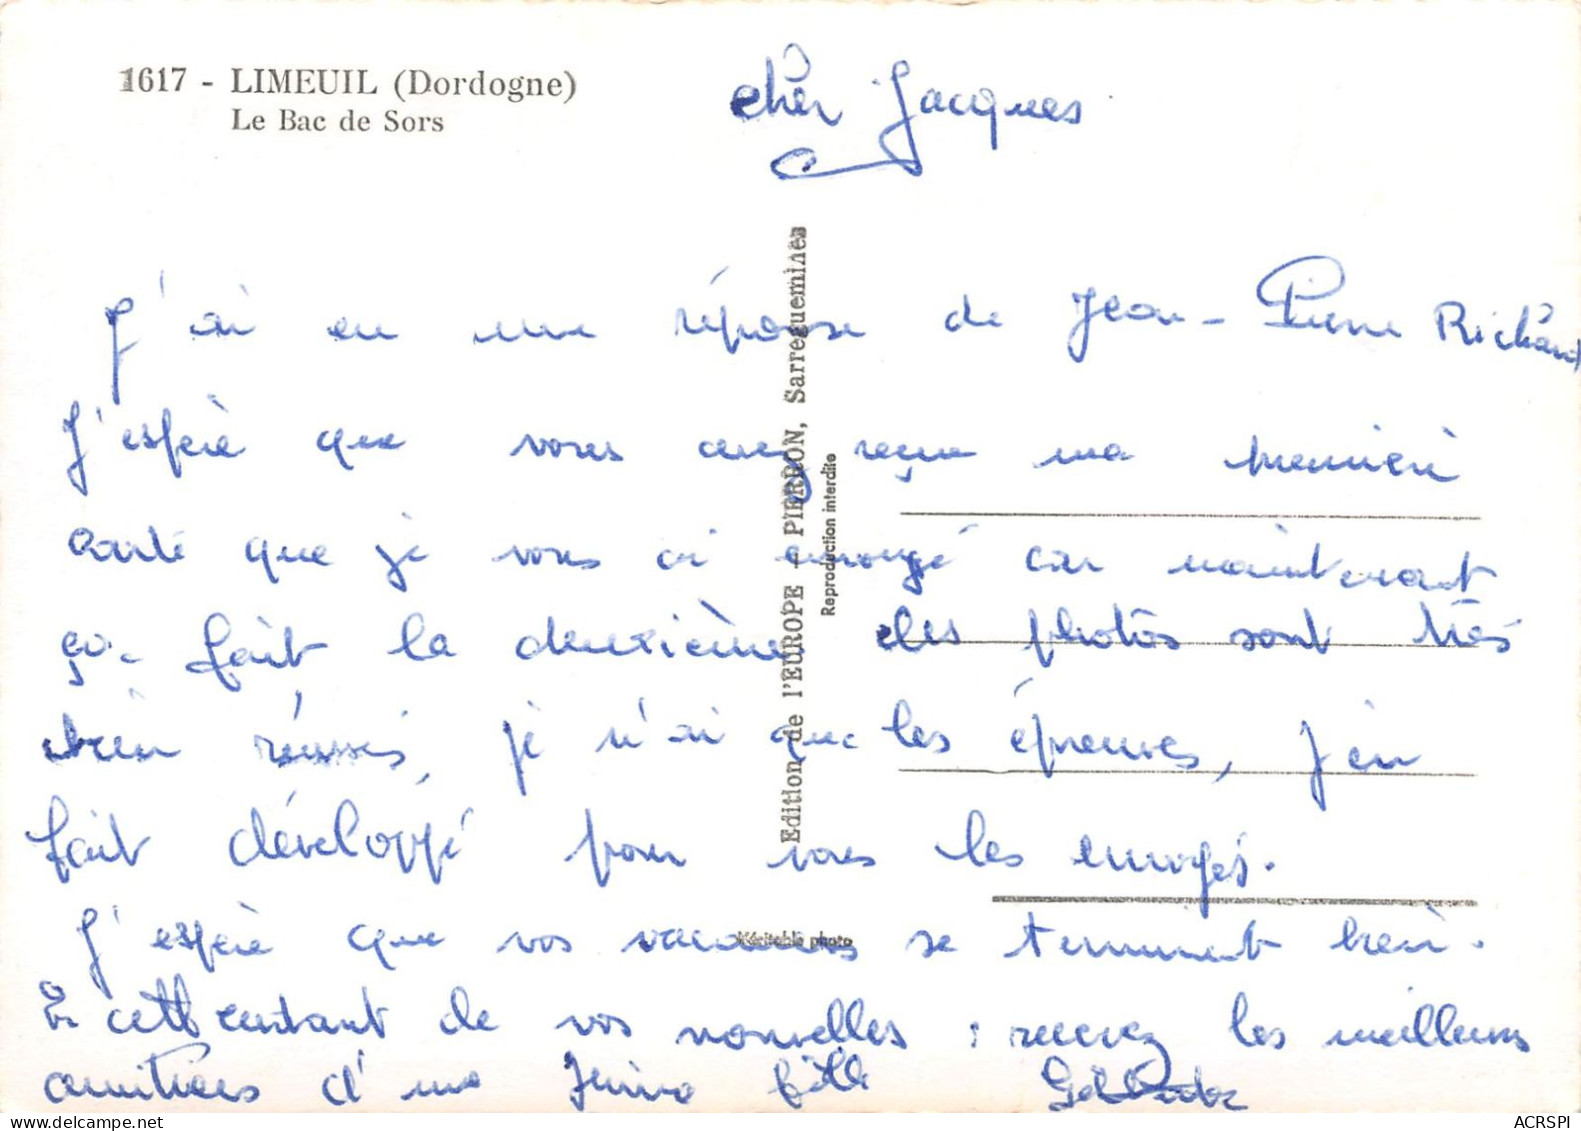 1617 - LIMEUIL (Dordogne)
Le Bac de Sors
cher Jacques
J'ai eu une réponse de Jean-Pierre Richard
J'espère que vous avez reçu ma première
carte que je vous ai envoyé car maintenant
ça fait la deuxième des photos sont très
bien réussis, je n'ai que les épreuves, j'en
fait développé pour vous les envoyés.
J'espère que vos vacances se terminent bien.
En cettentant de vos nouvelles : recevez les meilleurs
amitiers d'une jeune fille
Edition de l'EUROPE - PIERRON, Sarreguemines
Reproduction interdite
Véritable photo
ACRSPI